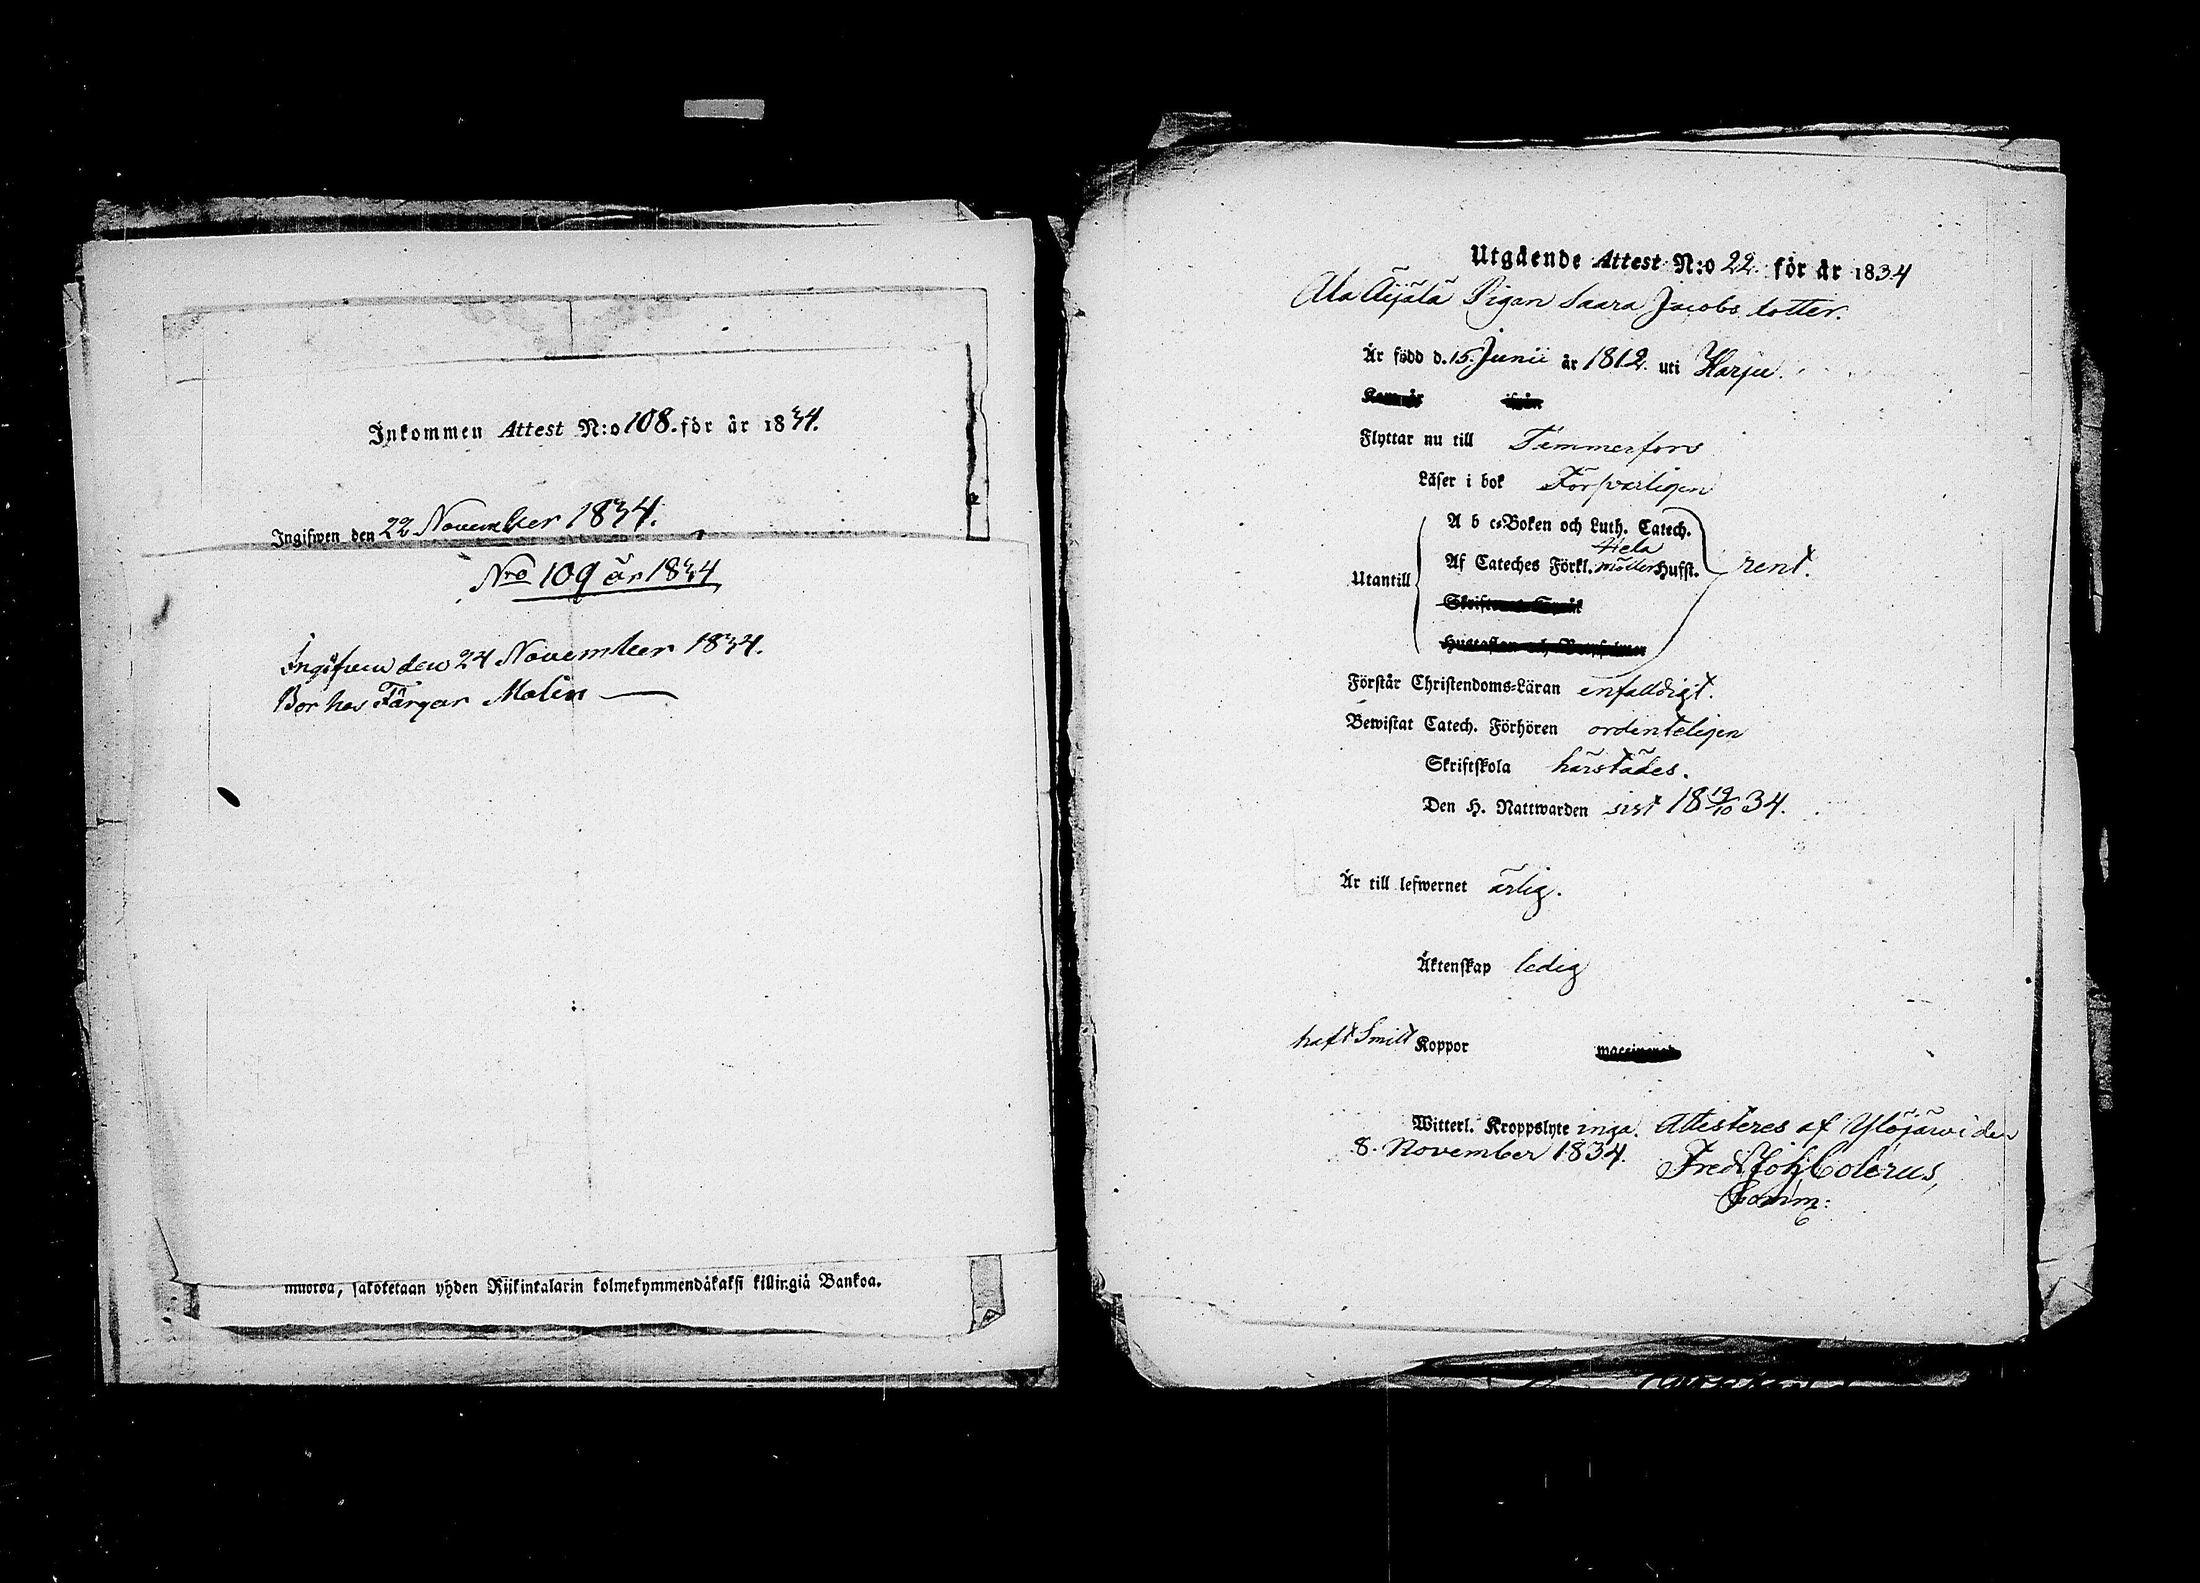 Inkommen Attest N:o 108. för år 1834.
Ingifwen den 22 November 1834.
Nro 109 år 1834
Ingifven den 24 November 1834.
Bor hos Färgar Malin
muoroa, sakotetaan yhden Riikintalarin kolmekymmendäkaksi killingiä Bankoa.
Utgående Attest N:o 22. för år 1834
Ala Äijälä Pigan Saara Jacobs dotter.
Är född d. 15. Junii år 1812. uti Harju.
Flyttar nu till Tammerfors
Läser i bok Försvarligen
A b c-Boken och Luth. Catech.
Hela
Utantill Af Cateches Förkl. Hufst. rent.
Skriftenes Språk
Hustaflan och Botpsalmer
Förstår Christendoms-Läran enfalldigt.
Bewistat Catech. Förhören ordenteligen
Skriftskola härstädes.
Den H. Nattwarden sist 18 19/10 34.
Är till lefwernet ärlig.
Äktenskap ledig
haft Smitt Koppor
Witterl. Kroppslyte inga. Attesteres af Ylöjärvi den
8. November 1834. Fredr Joh Colerus,
Comm: